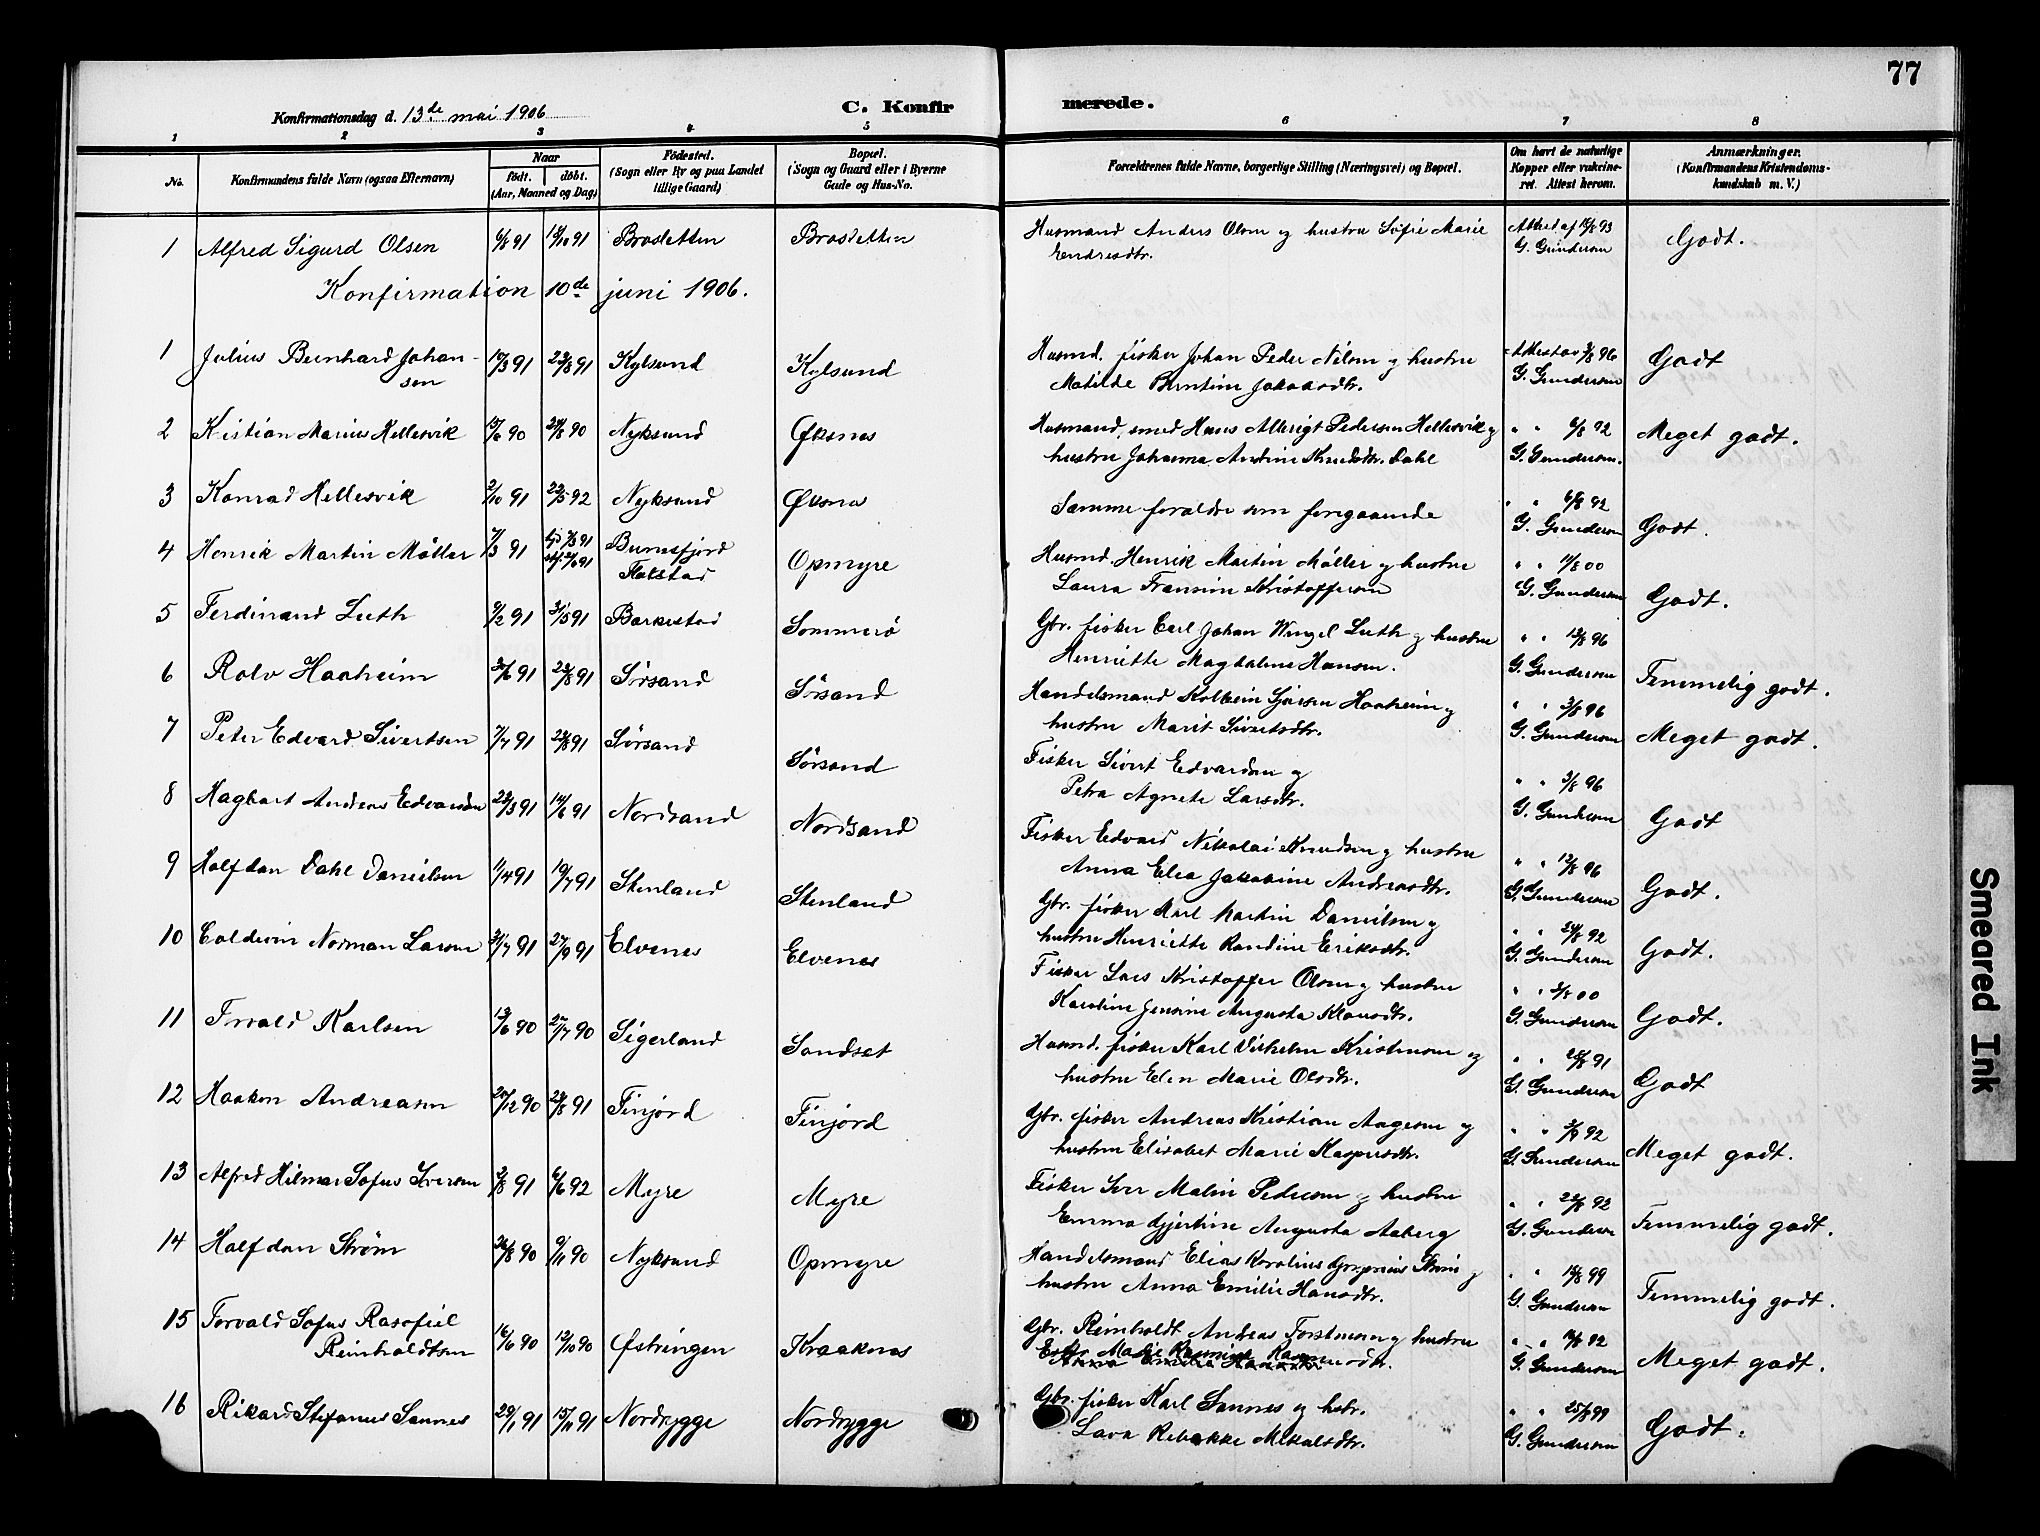 77
Konfirmationsdag d. 13de mai 1906
C. Konfirmerede.
1 2 3 4 5 6 7 8
No. Konfirmandens fulde Navn (ogsaa Efternavn) Naar født. døbt. (Aar, Maaned og Dag) Födested. (Sogn eller By og paa Landet tillige Gaard) Bopæl. (Sogn og Gaard eller i Byerne Gade og Hus-No. Forældrenes fulde Navne, borgerlige Stilling (Næringsvei) og Bopæl. Om havt de naturlige Kopper eller vakcineret. Attest herom. Anmærkninger. (Konfirmandens Kristendomskundskab m. V.)
1 Alfred Sigurd Olsen 6/8 91 18/10 91 Brosletten Brosletten Husmand Anders Olsen og hustru Sofie Marie Godt.
Endresdtr. G. Gundersen
Konfirmation 10de juni 1906.
1 Julius Bernhard Johansen 10/3 91 23/8 91 Kylsund Kylsund Husmd. fisker Johan Peder Nilsen og hustru Attest av 3/8 96 Godt
Matilde Berntine Jakobsdtr. G. Gundersen
2 Kistian Marius Hellesvik 15/6 90 24/8 90 Nyksund Øksnes Husmand, smed Hans Albrigt Pedersen Hellesvik og " " 6/8 92 Meget godt.
hustru Johanna Antine Knudsdtr. Dahl G. Gundersen.
3 Konrad Hellesvik 2/10 91 22/5 92 Nyksund Øksnes Samme foraldre som foregaaende " " 6/8 92 Godt.
G. Gundersen
4 Henrik Martin Møller 7/3 91 Bunesfjord Flakstad Opmyre Husmd. Henrik Martin Møller og hustru " " 11/8 00 Godt.
Laura Fransine Kristoffersen G. Gundersen
5 Ferdinand Luth 9/2 91 31/5 91 Barkestad Sommerø Gbr. fisker Carl Johan Wingel Luth og hustru " " 12/8 96 Temmelig godt.
Henriette Magdalene Hansen. G. Gundersen
6 Rolv Haaheim 30/6 91 23/8 91 Sørsand Sørsand Handelsmand Kolbein Haaheim og " " 3/8 96 Meget godt.
hustru Marit Sivertsdtr. G. Gundersen
7 Peter Edvard Sivertsen 7/7 91 23/8 91 Sørsand Sørsand Fisker Sivert Edvardsen og " " 3/8 96 Godt
Petra Agnete Larsdtr. G. Gundersen
8 Hagbart Andreas Edvardsen 22/3 91 14/6 91 Nordsand Nordsand Fisker Edvard Nikolai Knudsen og hustru " " 12/8 96 Godt.
Anna Elea Jakobine Andreasdtr. G. Gundersen
9 Halfdan Dahl Danielsen 1/4 91 19/7 91 Stenland Stenland Gbr. fisker Karl Martin Danielsen og " " 24/8 92 Godt.
hustru Henriette Randine Eriksdtr. G. Gundersen
10 Coldevin Norman Larsen 31/7 91 27/9 91 Elvenes Elvenes Fisker Lars Kristoffer Olsen og hustru " " 3/8 00 Godt.
Karoline Jensine Augusta Klausdtr. G. Gundersen
11 Torvald Karlsen 13/6 90 27/7 90 Sigerland Sandset Husmd. fisker Karl Vilhelm Kristensen og " " 20/8 91 Godt
hustru Elen Marie Olsdtr. G. Gundersen
12 Haakon Andreasen 20/12 90 24/5 91 Finjord Finjord Gbr. fisker Andreas Kristian Aagesen og " " 3/9 92 Meget godt.
hustru Elisabet Marie Kaspersdtr. G. Gundersen
13 Alfred Hilmar Sofus Iversen 2/8 91 6/6 92 Myre Myre Fisker Iver Malin Pedersen og hustru " " 22/8 92 Temmelig godt.
Emma Gjertine Augusta Aaberg G. Gundersen
14 Halfdan Strøm 26/8 90 9/11 90 Nyksund Opmyre Handelsmand Elias Karolius Strøm og " " 19/8 99 Temmelig godt.
hustru Anna Emilie Hansdtr. G. Gundersen
15 Torvald Sofus Rasofiel Reinholdtsen 16/6 90 12/10 90 Østringen Kraaknes Gbr. Reinholdt Andreas Forstmann og hustru " " 16/8 92 Meget godt.
G. Gundersen
16 Rikard Stefanus Sannes 29/1 91 15/11 91 Nordrygge Nordrygge Gbr. fisker Karl Sannes og hstr. " " 25/8 99 Godt.
Lava Rebekke Mikalsdtr. G. Gundersen
Smeared Ink